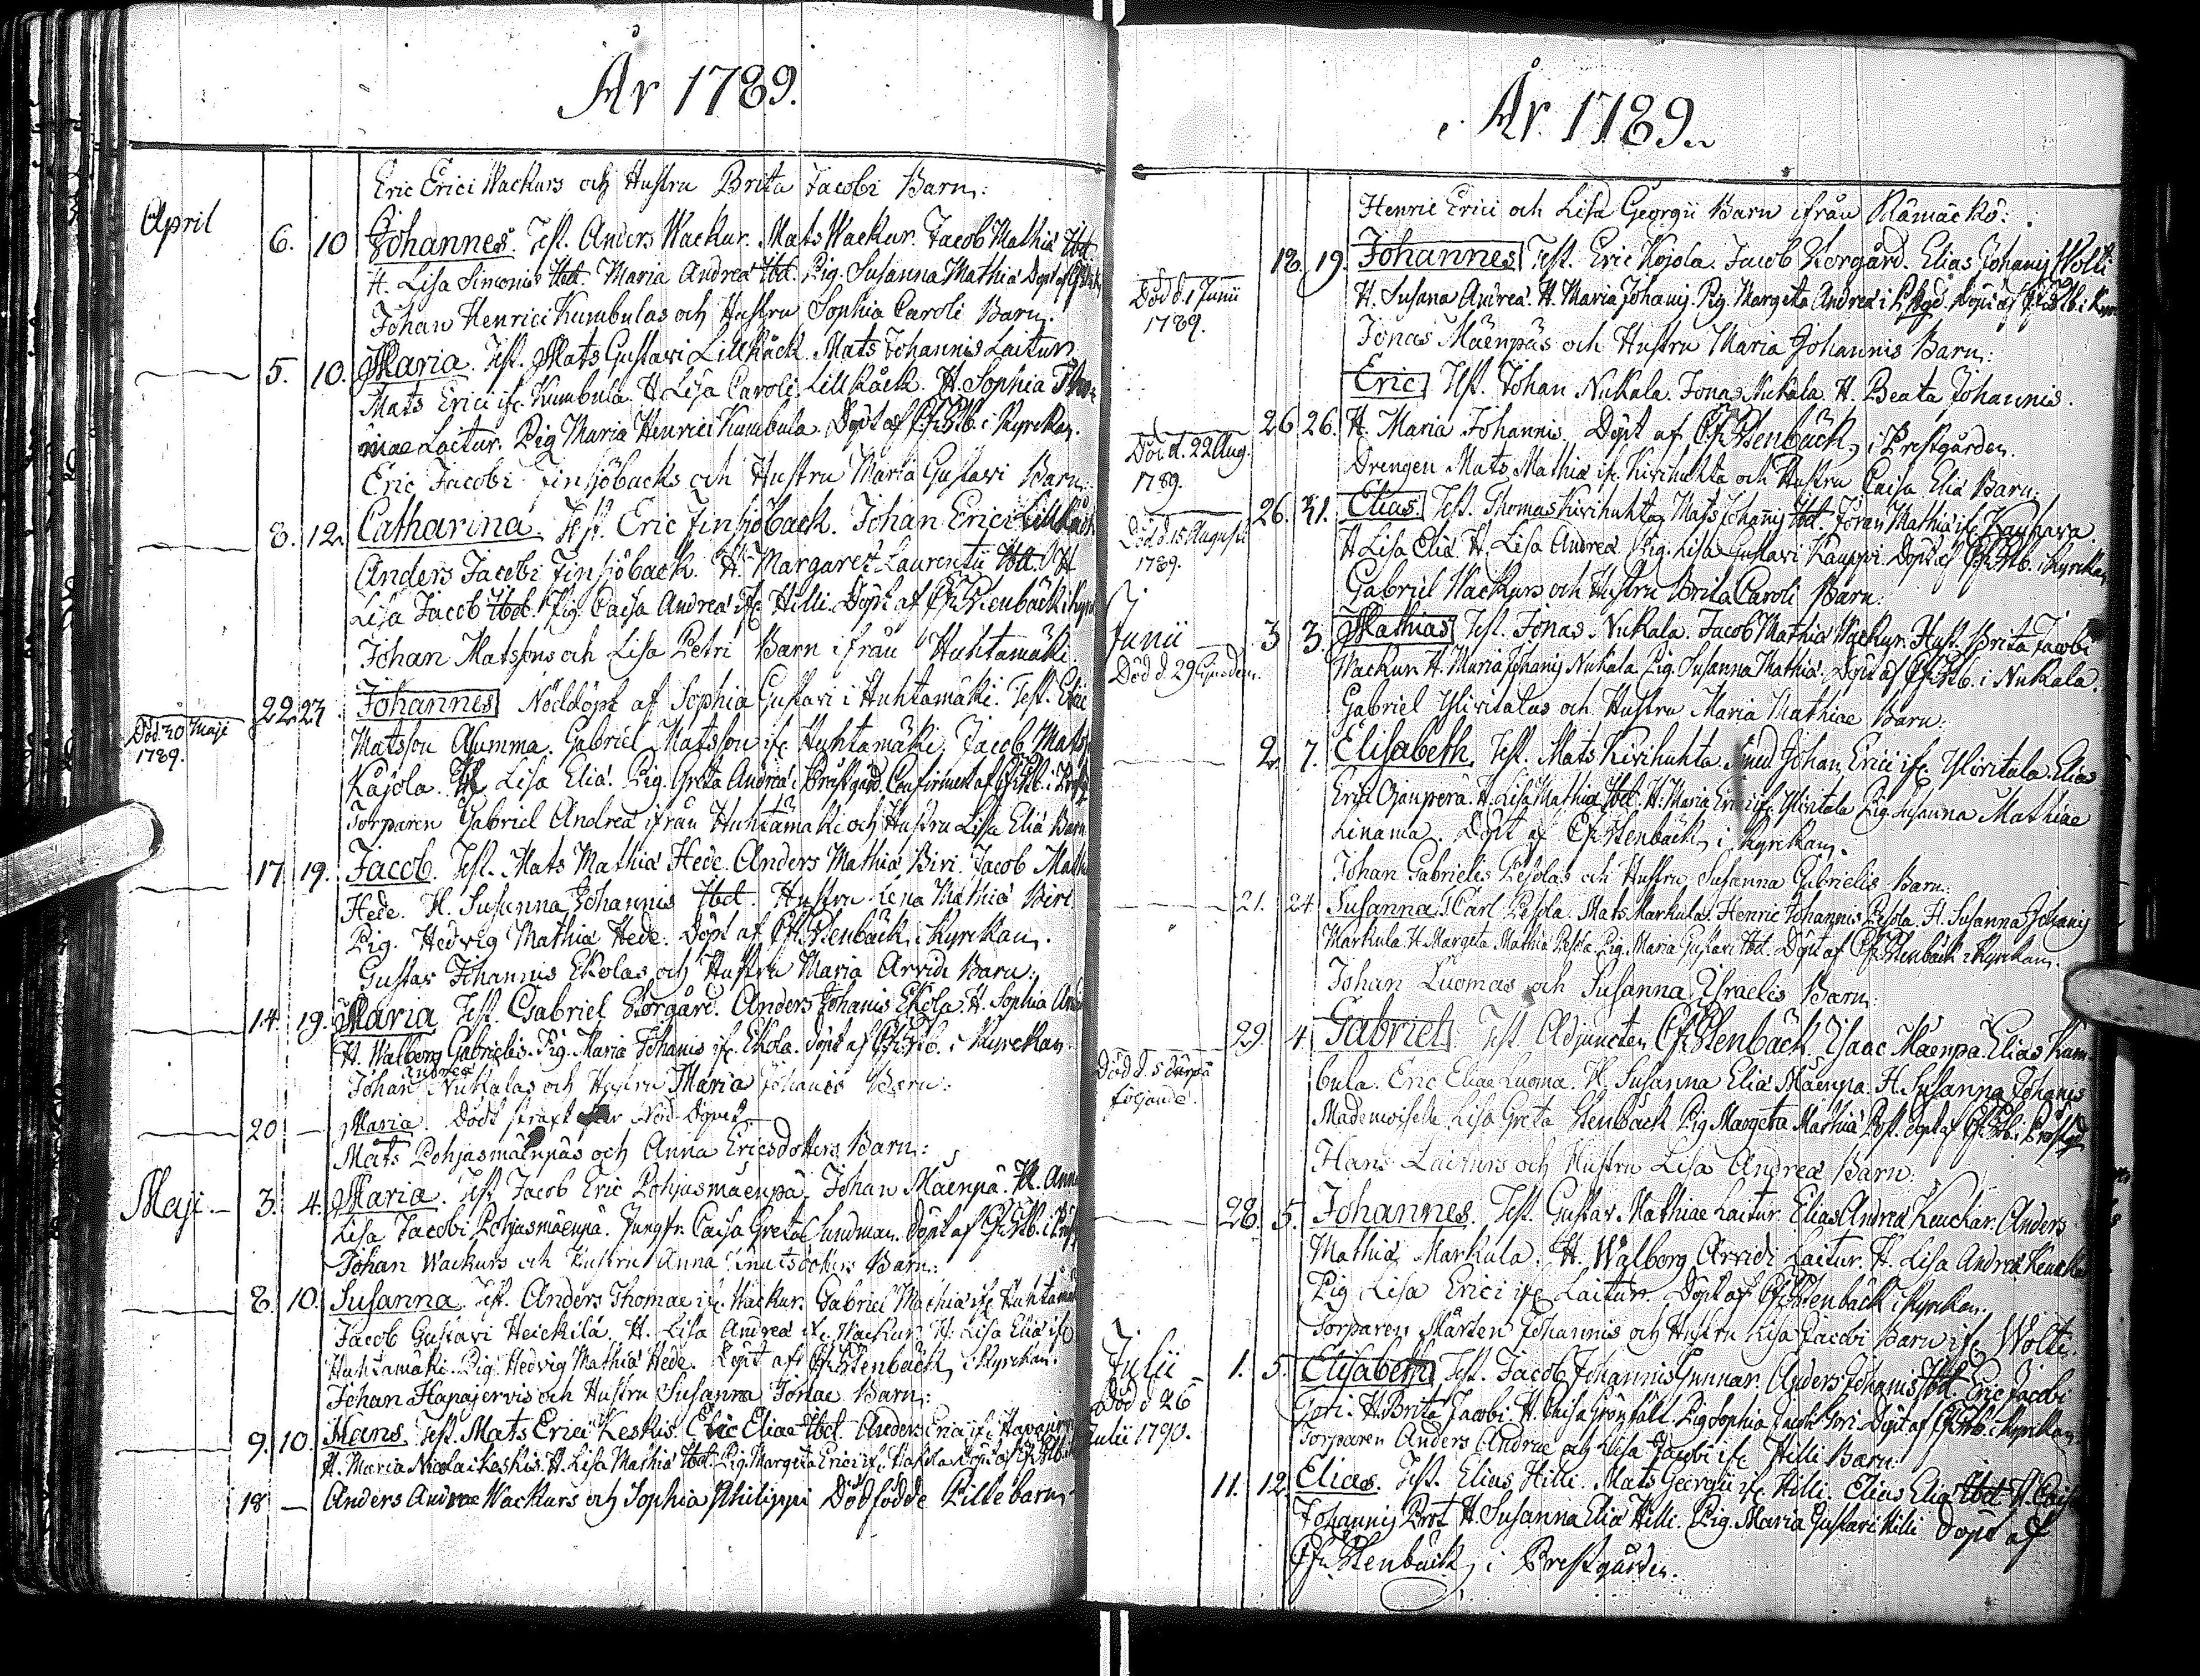 År 1789.
Eric Erici Wackurs och Hustru Brita Jacobi Barn:
April 6. 10 Johannes. Test. Anders Wackur. Mats Wackur. Jacob Mathiæ Ibd.
H. Lisa Simonis Ibd. Maria Andreæ Ibd. Pig. Susanna Mathiæ
Johan Henrici Kumbulas och Hustru Sophia Caroli Barn.
5. 10. Maria. Test. Mats Gustavi Lillkåck. Mats Johannis Laitur
Mats Erici ifr. Kumbula. H. Lisa Caroli Lillkåck. H. Sophia Tho-
mae Laitur. Pig Maria Henrici Kumbula. Döpt af i Kyrckan.
Eric Jacobi Finsjöbacks och Hustru Maria Gustavi Barn:
8. 12. Catharina. Test. Eric Finsjöback. Johan Erici Lillkåck
Anders Jacobi Finsjöback. H. Margaret Laurentii Ibd. H.
Lisa Jacob Ibd. Pig. Caisa Andreæ ifr. Hilli. Döpt af Stenbäck i
Johan Matssons och Lisa Petri Barn ifrån Huhtamäki
22. 24. Johannes. Nöddöpt af Sophia Gustavi i Huhtamäki. Test. Eric
Död 30 Maji
1789.
Matsson Gumma. Gabriel Matsson ifr. Huhtamäki. Jacob Mats
Kajola. H. Lisa Eliæ. Pig. Greta Andreæ i Prestgård. Confirmert af
Torparen Gabriel Andreæ ifrån Huhtamäki och Hustru Lisa Eliæ Barn
17. 19. Jacob. Test. Mats Mathiæ Hede. Anders Mathiæ Biri. Jacob Math
Hede. H. Susanna Johannis Ibd. Hustru Lena Mathiæ Biri.
Pig. Hedvig Mathiæ Hede. Döpt af Stenbäck i Kyrckan.
Gustav Johannis Ekolas och Hustru Maria Arvidi Barn:
14. 19. Maria Test. Gabriel Storgård. Anders Johanis Ekola. H. Sophia
H. Walborg Gabrielis. Pig. Maria Johanis ifr. Ekola. Döpt af i Kyrckan.
Johan Andreæ Nukalas och Hustru Maria Johanis Barn:
20 — Maria. Dödt straxt Nöd Döpet.
Mats Pohjasmäenpäs och Anna Ericsdotters Barn:
Maji 3. 4. Maria. Test Jacob Eric Pohjasmäenpä. Johan Mäenpä. H. Anna
Lisa Jacobi Pohjasmäenpä. Jungfr. Caisa Greta Sundman. Döpt af
Johan Wackurs och Hustru Anna Barn:
8. 10. Susanna. Test. Anders Thomae ifr. Wackur. Gabriel Mathiæ ifr. Huhtamäki
Jacob Gustavi Heickilä. H. Lisa Andreæ ifr. Wackur. H. Lisa Eliæ ifr.
Huhtamäki. Pig. Hedvig Mathiæ Hede. Döpt af Stenbäck i Kyrckan.
Johan Hapajervis och Hustru Susanna Jonae Barn:
9. 10. Hans. Test. Mats Erici Keskis. Eric Eliae Ibd. Anders Erici ifr.
H. Maria Nicolai Keskis. H. Lisa Mathiæ Ibd. Pig. Margeta Erici ifr.
18 — Anders Andreae Wackurs och Sophia Philippi Dödfödde Pillebarn.
År 1789.
Henric Erici och Lisa Georgii Barn ifrån Kämäckö:
18. 19. Johannes Test. Eric Kojola. Jacob Storgård. Elias Johanis Wolti
Död d. 1 Junii
1789.
H. Susana Andreæ. H. Maria Johanis. Pig. Margeta Andreæ i
Jonas Mäenpäs och Hustru Maria Johannis Barn:
Eric Test. Johan Nukala. Jonas Nukala. H. Beata Johannis.
26 26. H. Maria Johannis. Döpt af Stenbäck, i Prestgården.
Död d. 22 Aug.
1789.
Drengen Mats Mathiæ ifr. Kivihuhta och Hustru Caisa Eliæ Barn:
26. 31. Elias. Test. Thomas Kivihuhta. Mats Johanis Ibd. Jöran Mathiæ ifr. Kauhava.
Död d. 15 Augusti
1789.
H Lisa Eliæ. H. Lisa Andreæ. Pig. Lisa Gustavi Kauppi. Döpt af i Kyrckan
Gabriel Wackurs och Hustru Brita Caroli Barn:
Junii 3 3. Mathias Test. Jonas Nukala. Jacob Mathiæ Wackur. Hust. Brita Jacobi
Död d. 29
Wackur. H. Maria Johanis Nukala. Pig. Susanna Mathiæ. Döpt af i Nukala.
Gabriel Ylivitalas och Hustru Maria Mathiae Barn:
2. 7. Elisabeth. Test. Mats Kivihuhta. Smed Johan Erici ifr. Ylivitala. Elias
Erici Ojanperä. H. Lisa Mathiæ Ibd. H. Maria Erici ifr. Ylivitala Pig. Susanna Mathiae
Linama. Döpt af Stenbäck, i Kyrckan.
Johan Gabrielis Pesolas och Hustru Susanna Gabrielis Barn:
21. 24. Susanna. T. Carl Pesola. Mats Markula. Henric Johannis Pesola. H. Susanna Johanis
Markula. H. Margeta Mathiæ Pesola. Pig. Maria Gustavi Ibd. Döpt af Stenbäck i Kyrckan.
Johan Luomas och Susanna Israelis Barn:
29. 4. Gabriel. Test Adjuncten Stenbäck. Isaac Mäenpä. Elias Kum-
Död d. 5 Därpå
följande.
bula. Eric Eliae Luoma. H. Susanna Eliæ Mäenpä. H. Susanna Johanis
Mademoiselle Lisa Greta Stenbäck Pig Margeta Mathiæ
Hans Laiturs och Hustru Lisa Andreæ Barn:
28. 5. Johannes. Test. Gustav Mathiae Laitur. Elias Andreæ Keuckar. Anders
Mathiæ Markula. H. Walborg Arvidi Laitur. H. Lisa Andreæ
Pig Lisa Erici ifr. Laitur. Döpt af Stenbäck i Kyrckan:
Torparen Mårten Johannis och Hustru Lisa Jacobi Barn ifr. Wolti.
Julii 1. 5. Elisabeth Test. Jacob Johannis Gunnar. Anders Johanis Ibd. Eric Jacobi
Död d 26
Julii 1790.
Gori. H. Brita Jacobi. H. Caisa Grönfält. Pig Sophia Jacobi Gori. Döpt af i Kyrckan.
Torparen Anders Andreae och Lisa Jacobi ifr. Hilli Barn:
11. 12. Elias. Test. Elias Hilli. Mats Georgii ifr. Hilli. Elias Eliæ Ibd. H. Caisa
Johannis Prot H. Susanna Eliæ Hilli. Pig. Maria Gustavi Hilli Döpt af
Stenbäck, i Prestgården.